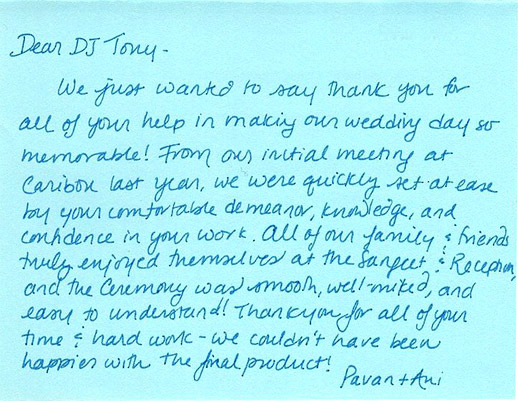 Dear DJ Tony-
We just wanted to say thank you for
all of your help in making our wedding day so
memorable! From our initial meeting at
Caribou last year, we were quickly set at ease
by your comfortable demeanor, knowledge, and
confidence in your work. All of our family & friends
truly enjoyed themselves at the Sangeet & Reception,
and the Ceremony was smooth, well-miked, and
easy to understand! Thank you for all of your
time & hard work - we couldn't have been
happier with the final product!
Pavan + Ani